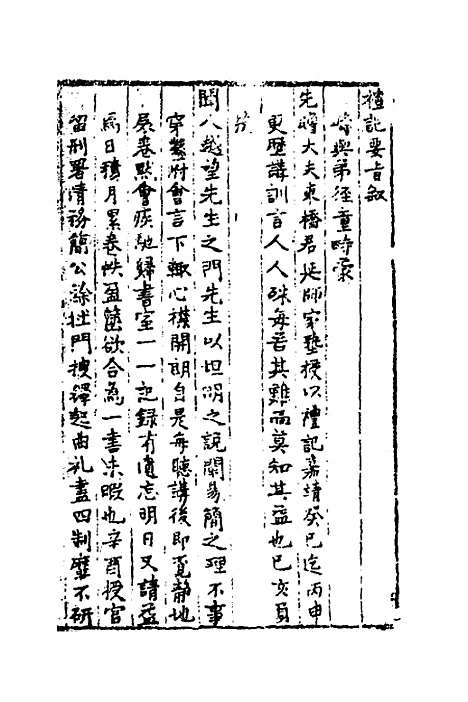 禮記要旨叙
嵵與弟徑童時蒙
先贈大夫東橋君延師家塾授以禮記嘉靖癸巳迄丙申
更歷講訓言人人殊每苦其難而莫知其益也己亥負
笈
閩人越望先生之門先生以坦明之說闡易簡之理不事
穿鑿附會言下輒心襟開朗自是每聽講後即覓靜地
展卷默會疾馳歸書室一一記録有遺忘明日又請益
焉日積月累卷帙盈篋欲合為一書未暇也辛酉授官
留刑署清務簡公餘杜門搜繹起曲礼盡四制靡不研